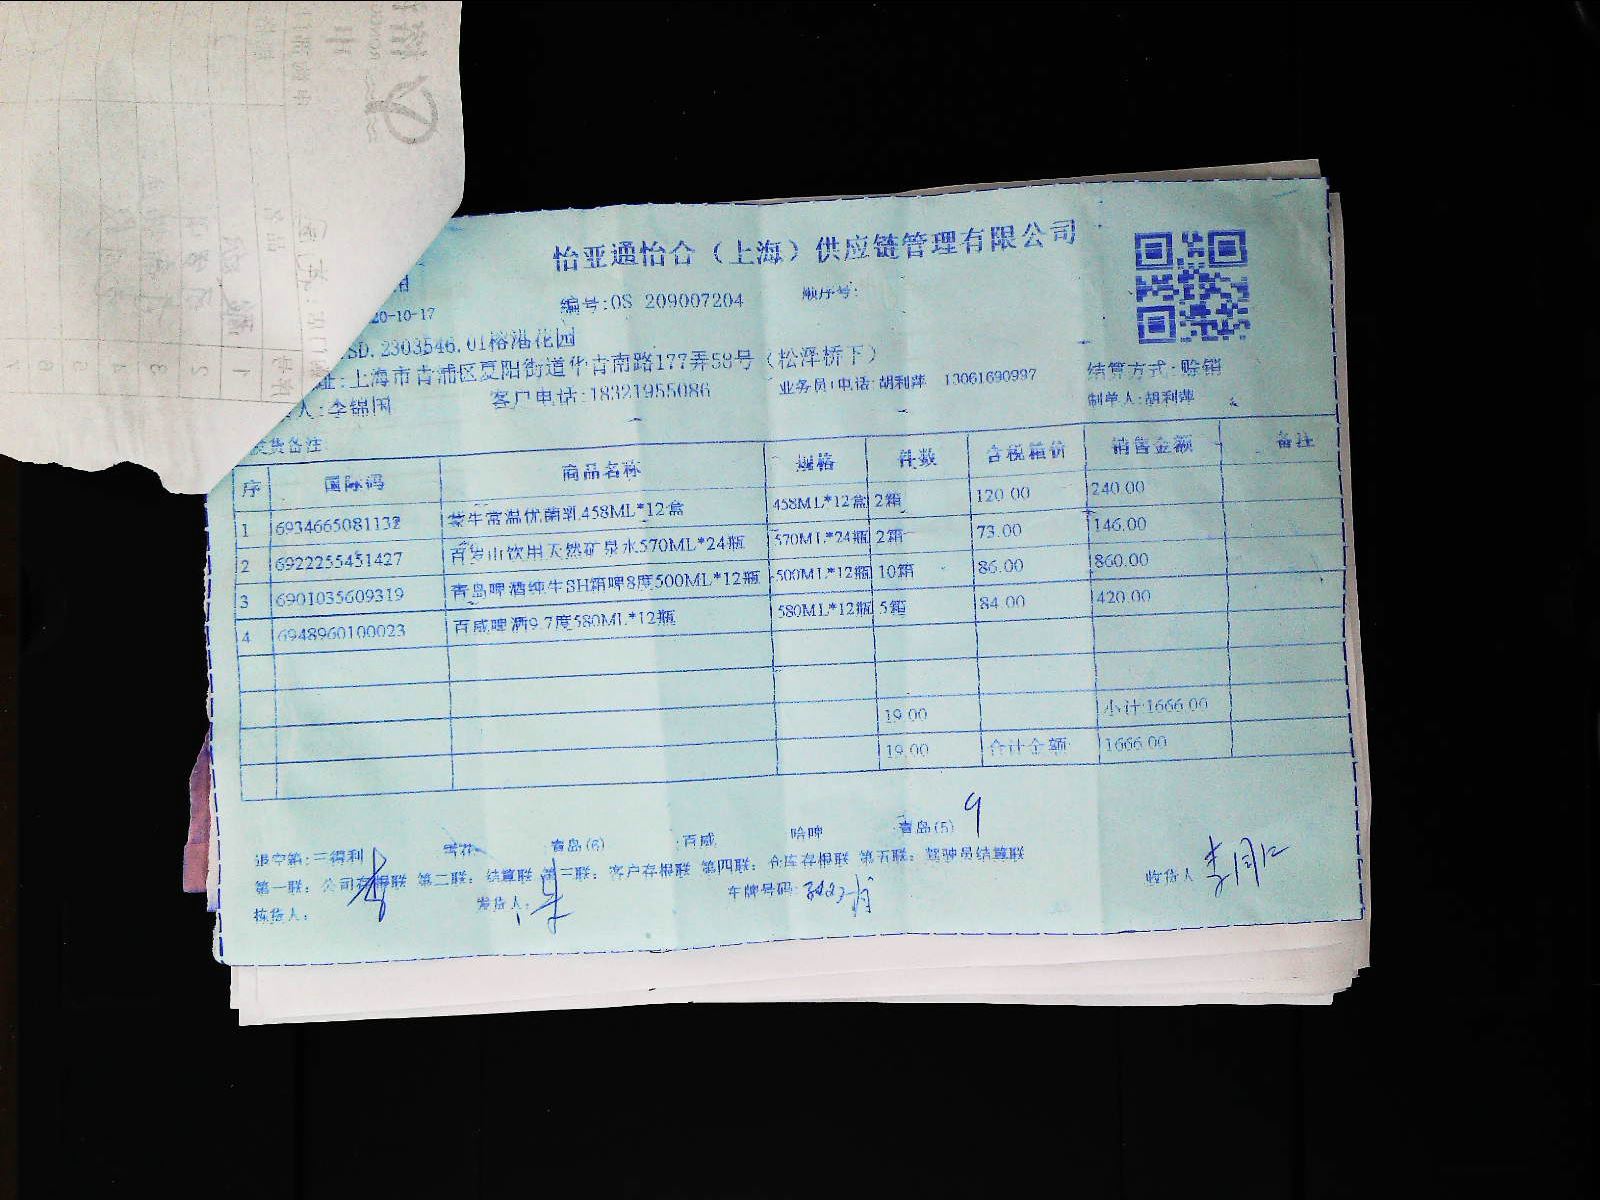 怡亚通怡合（上海）供应链管理有限公司
编号:OS 209007204 顺序号:
20-10-17
SD.2303546.01榕港花园
址:上海市青浦区夏阳街道华青南路177弄58号（松泽桥下）
人:李锦国 客户电话:18321955086 业务员|电话:胡利萍 13061690997 结算方式:赊销
制单人:胡利萍
发货备注:
序 国际码 商品名称 规格 件数 含税箱价 销售金额 备注
1 6934665081132 蒙牛常温优菌乳458ML*12盒 458ML*12盒 2箱 120.00 240.00
2 6922255451427 百岁山饮用天然矿泉水570ML*24瓶 570ML*24瓶 2箱 73.00 146.00
3 6901035609319 青岛啤酒纯生SH箱啤8度500ML*12瓶 500ML*12瓶 10箱 86.00 860.00
4 6948960100023 百威啤酒9.7度580ML*12瓶 580ML*12瓶 5箱 84.00 420.00
19.00 小计:1666.00
19.00 合计金额: 1666.00
退空箱:三得利 雪花 青岛(6) 百威 哈啤 青岛(5) 9
第一联：公司存根联 第二联：结算联 第三联：客户存根联 第四联：仓库存根联 第五联：驾驶员结算联
拣货人： 发货人： 车牌号码: 收货人